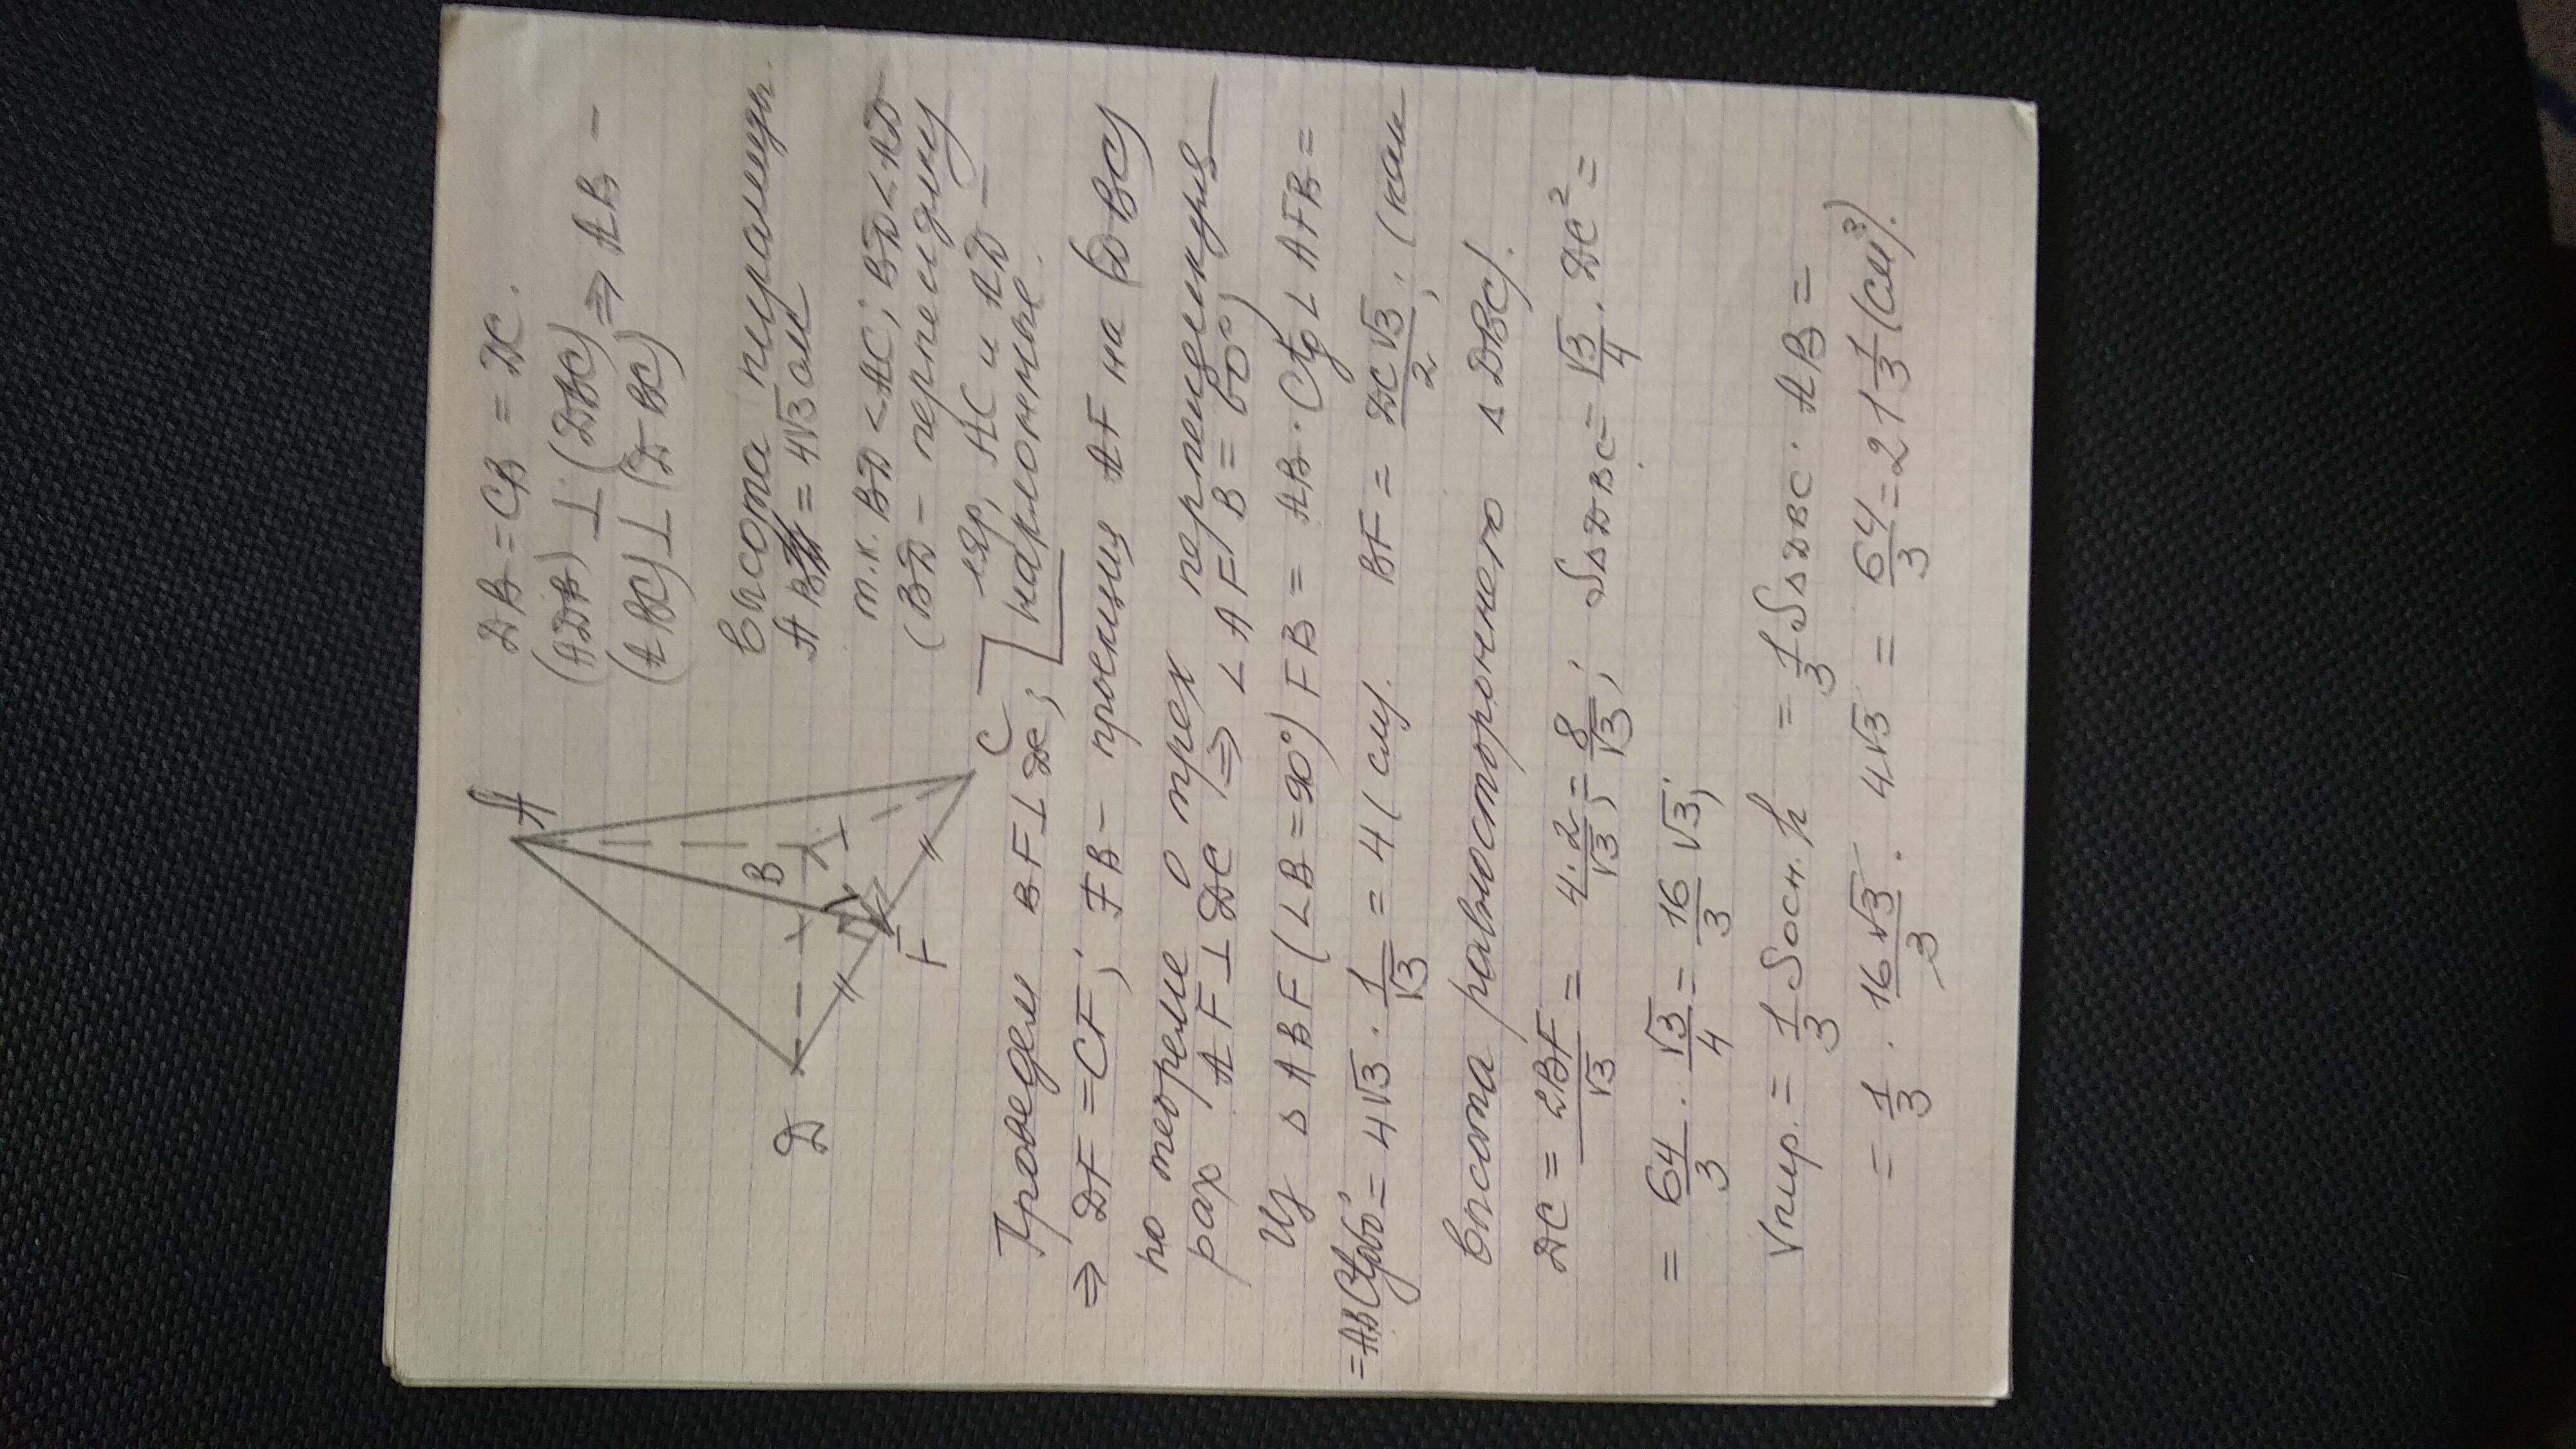 DB = CB = DC.
(ADB) ⊥ (DBC)
(ABC) ⊥ (DBC) ⇒ AB –
высота пирамиды.
AB = 4√3 см
т.к. BD < AC; BD < AD
(BD – перпендику
ляр, AC и AD –
наклонные.
A
B
D
F
C
Проведем BF ⊥ DC;
⇒ DF = CF; FB – проекция AF на (DBC)
по теореме о трех перпендикуля–
рах AF ⊥ DC ⇒ ∠AFB = 60°)
Из ΔABF (∠B = 90°) FB = AB · Ctg∠AFB =
= AB Ctg60° = 4√3 · 1/√3 = 4 (см). BF = DC√3/2; (как
высота равностороннего ΔDBC).
DC = 2BF/√3 = 4·2/√3; = 8/√3; SΔDBC = √3/4 · DC² =
= 64/3 · √3/4 = 16/3 √3;
Vпир. = 1/3 Sосн. h = 1/3 SΔDBC · AB =
= 1/3 · 16√3/3 · 4√3 = 64/3 = 21 1/3 (см³).